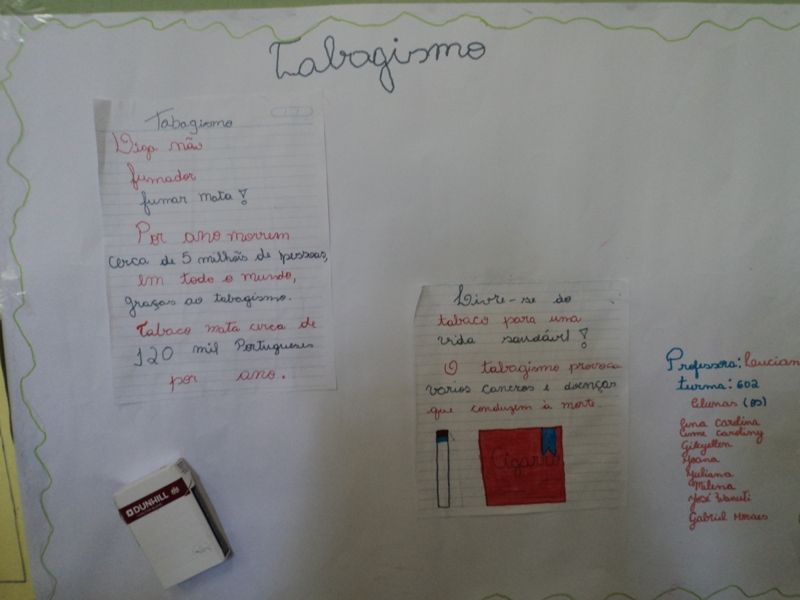 Tabagismo
Tabagismo
Diga não
fumador
fumar mata!
Por ano morrem
cerca de 5 milhõis de pessoas,
em todo o mundo,
graças ao tabagismo.
Tabaco mata cerca de
120 mil Portugueses
por ano.
DUNHILL
Livre-se do
tabaco para uma
vida saudável!
O tabagismo provoca
varios cancros e doenças
que conduzem à morte.
Cigarro
Professora: Lucian
turma: 602
Alunas (os)
Ana Carolina
Anne Caroliny
Joana
Juliana
Milena
José
Gabriel Moraes